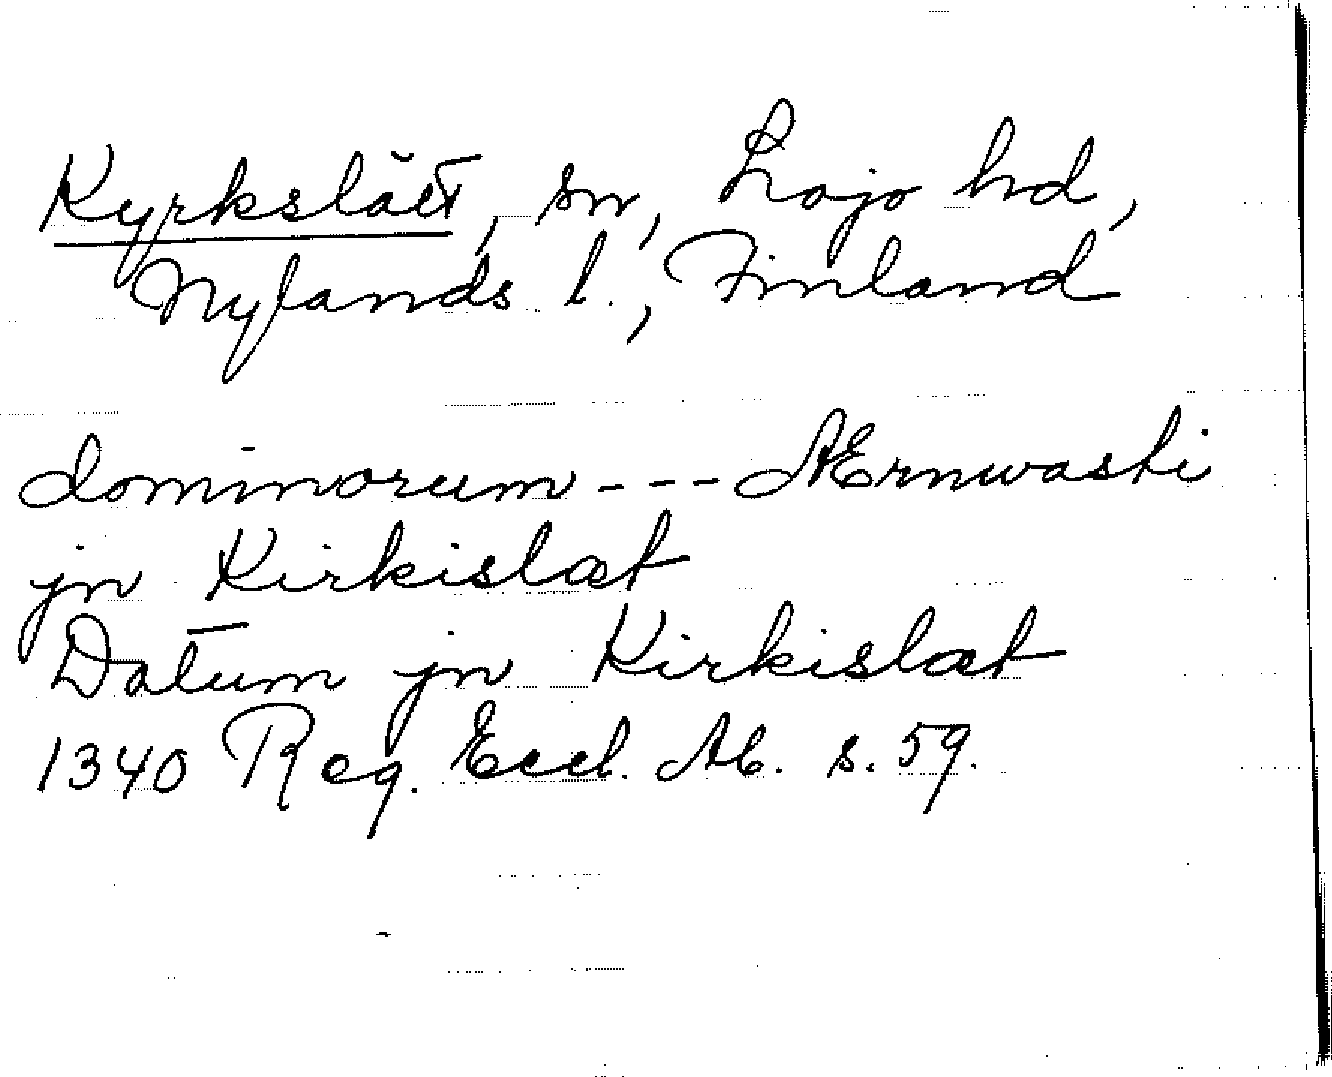 Kyrkslätt, sn, Lojo hd,
Nylands l., Finland
dominorum --- Ærnwasti
jn Kirkislæt
Datum jn Kirkislæt
1340 Reg. Eccl. Ab. s. 59.